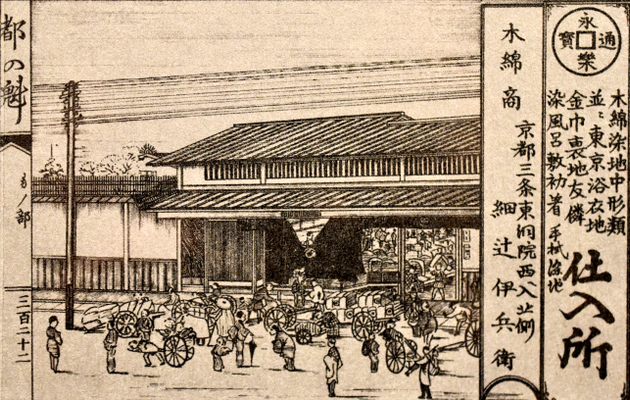 永樂通寶
木綿染地中形類
並ニ東京浴衣地
金巾裏地友禅
染風呂敷初着
仕入所
木綿商
京都三条東洞院西入北側
細辻伊兵衛
都の魁
もノ部
三百二十二